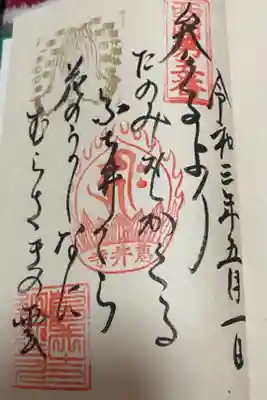 令和三年五月一日
参るより
たのみをかくる
ふち井てら
花のうてなに
むらさきの雲
葛井寺